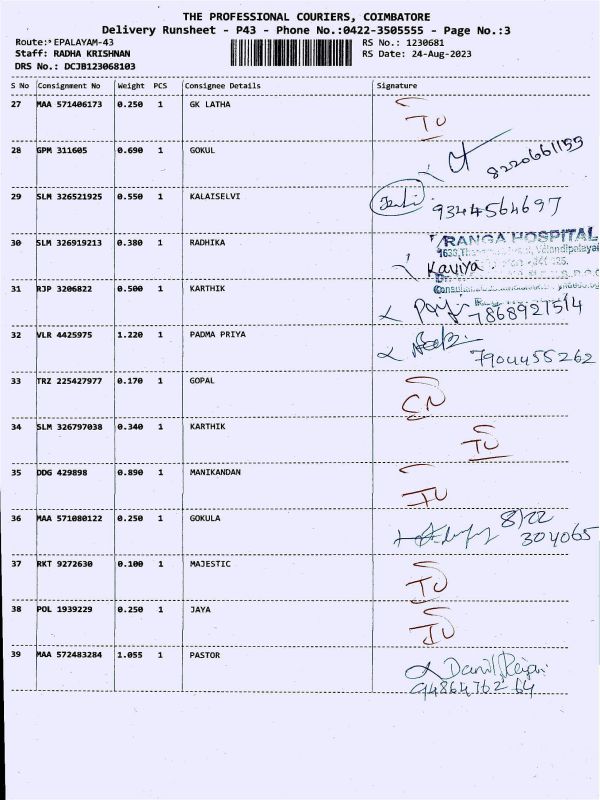 THE PROFESSIONAL COURIERS, COIMBATORE
Delivery Runsheet - P43 - Phone No.:0422-3505555 - Page No.:3
Route: EPALAYAM-43 RS No.: 1230681
Staff: RADHA KRISHNAN RS Date: 24-Aug-2023
DRS No.: DCJB123068103
S No Consignment No Weight PCS Consignee Details Signature
27 MAA 571406173 0.250 1 GK LATHA
28 GPM 311605 0.690 1 GOKUL 8220661155
29 SLM 326521925 0.550 1 KALAISELVI 9344564697
30 SLM 326919213 0.380 1 RADHIKA RANGA HOSPITAL
Kaviya
31 RJP 3206822 0.500 1 KARTHIK 7868921514
32 VLR 4425975 1.220 1 PADMA PRIYA 7904455262
33 TRZ 225427977 0.170 1 GOPAL
34 SLM 326797038 0.340 1 KARTHIK
35 DDG 429898 0.890 1 MANIKANDAN
36 MAA 571080122 0.250 1 GOKULA 8122
304065
37 RKT 9272630 0.100 1 MAJESTIC
38 POL 1939229 0.250 1 JAYA
39 MAA 572483284 1.055 1 PASTOR
9486476264